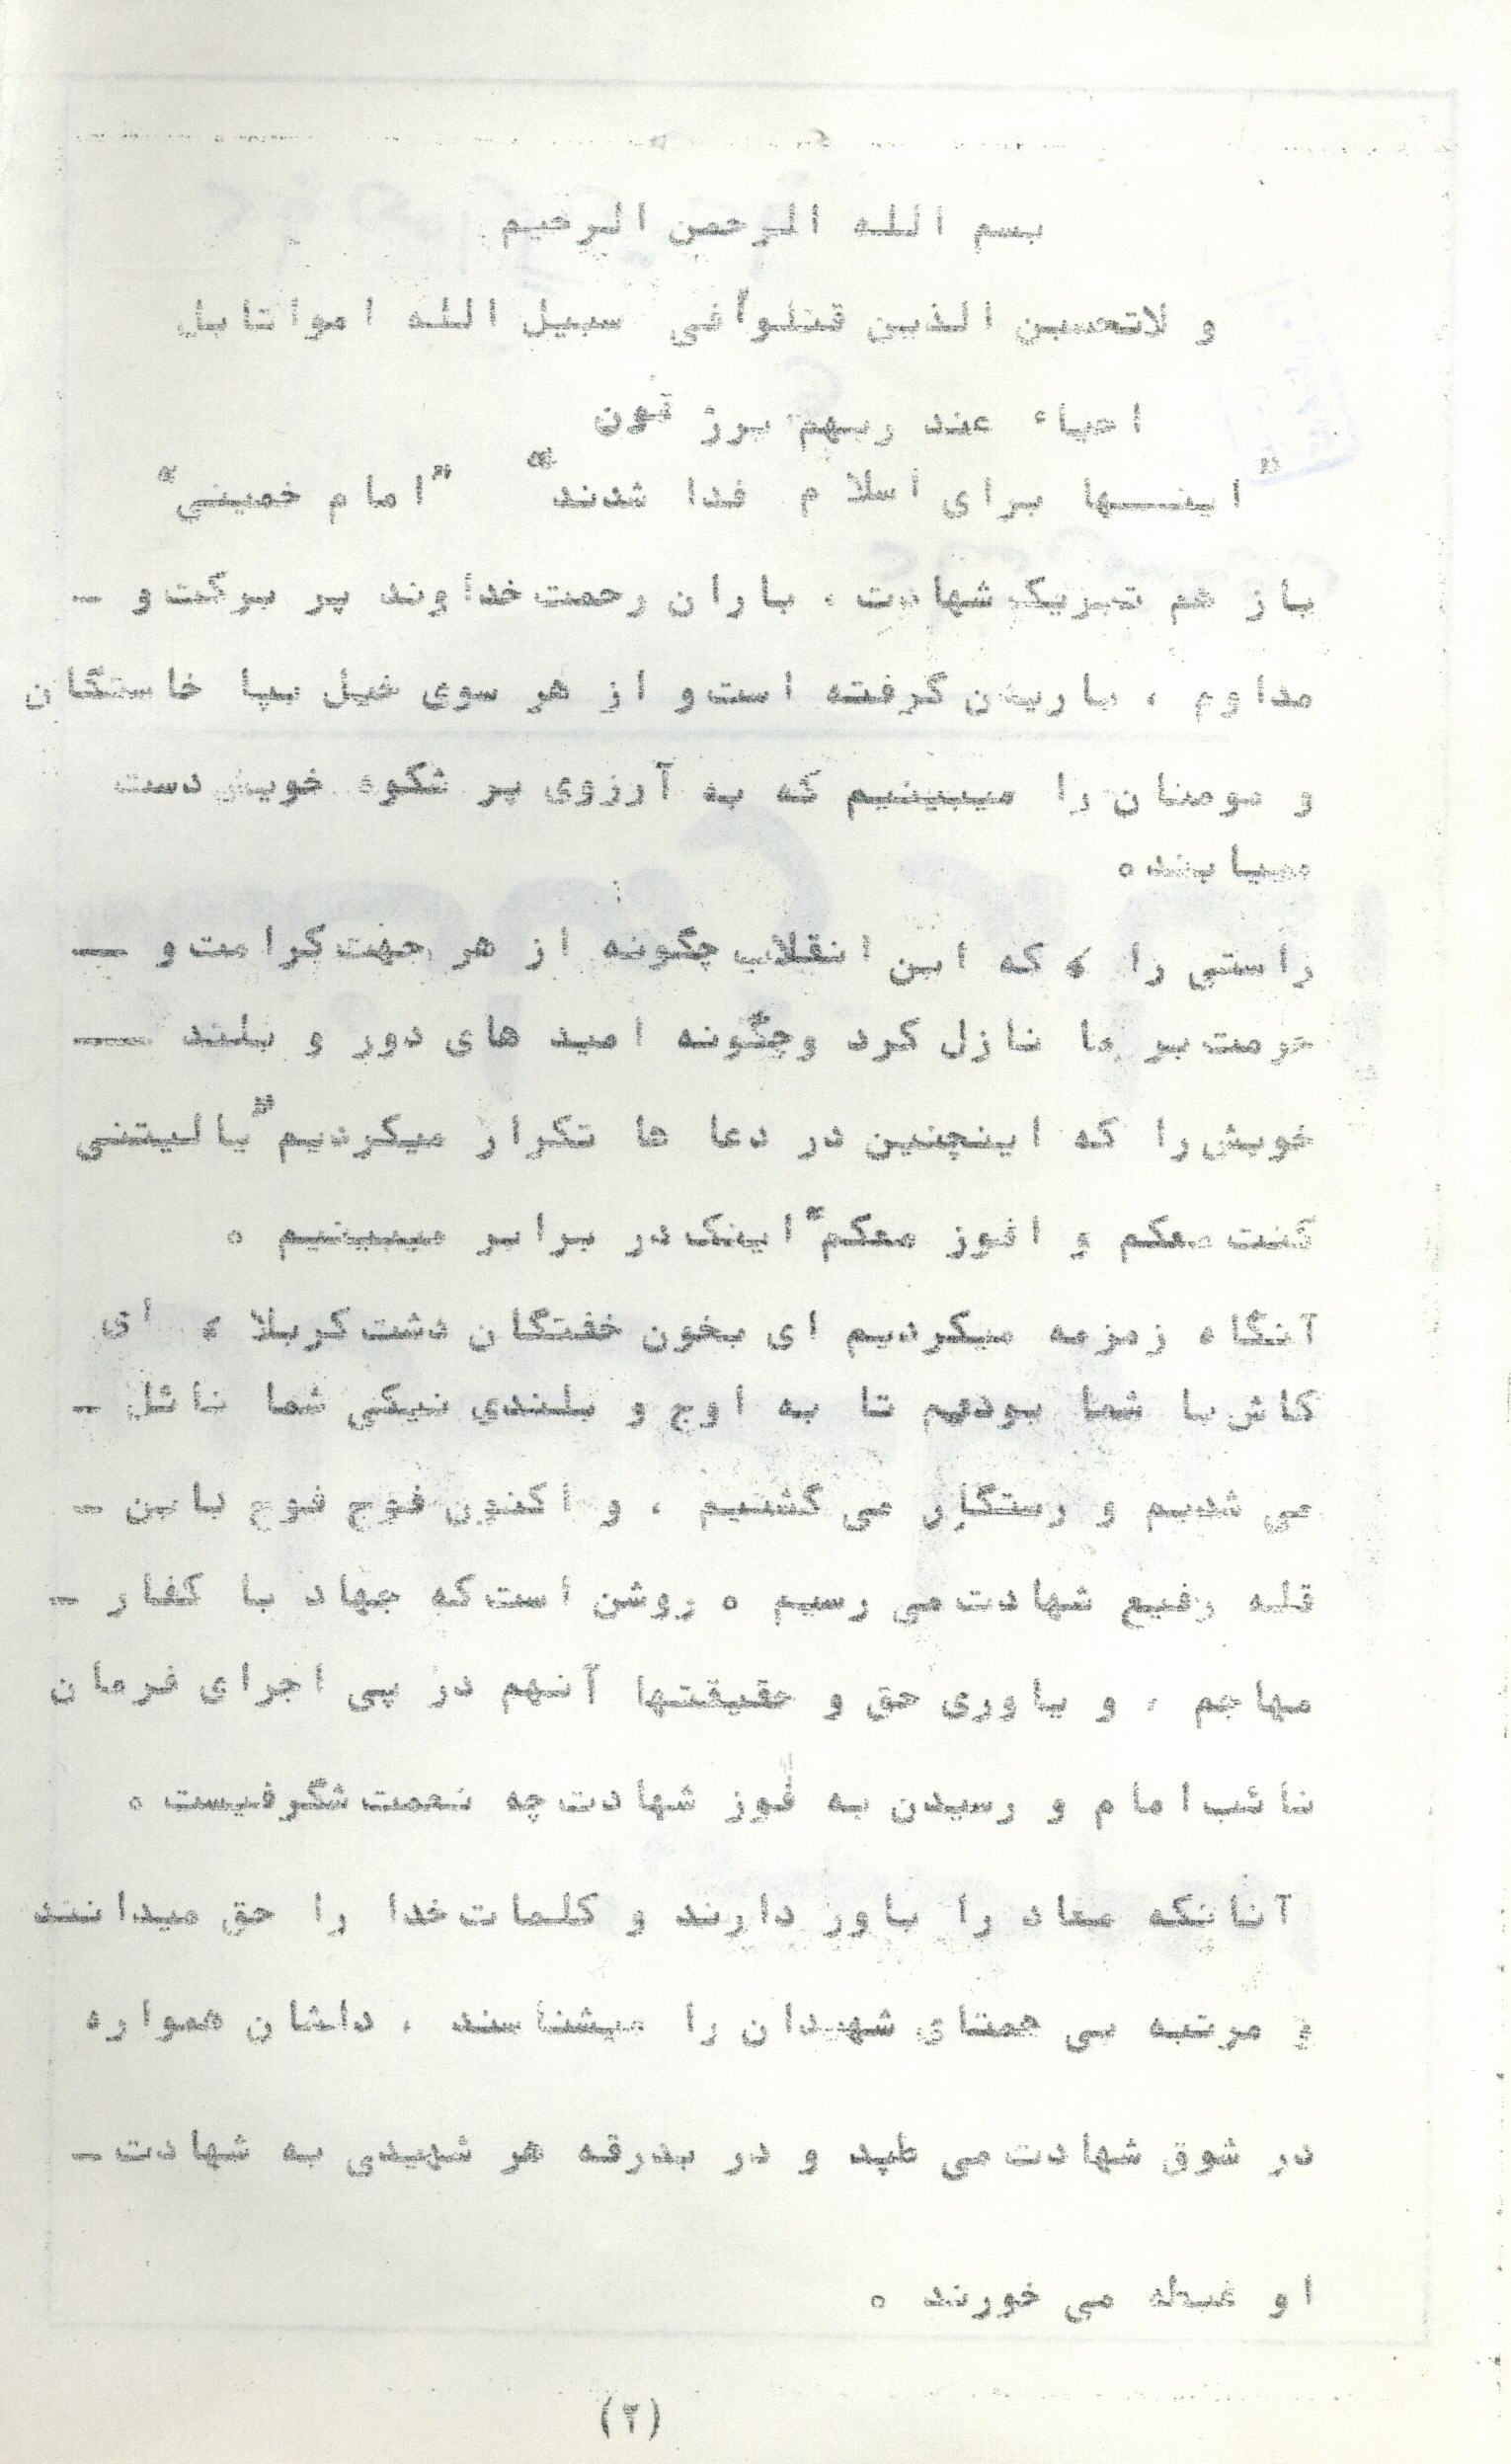 بسم الله الرحمن الرحیم
و لاتحسبن الذین قتلوا فی سبیل الله امواتابل
احیاء عند ربهم یرزقون
"اینـها برای اسلام فدا شدند" "امام خمینی"
باز هم تبریک شهادت ، باران رحمت خداوند پر برکت و -
مداوم ، باریدن گرفته است و از هر سوی خیل بپا خاستگان
و مومنان را میبینیم که به آرزوی پر شکوه خویش دست
مییابنده
راستی را ، که این انقلاب چگونه از هر جهت کرامت و —
حرمت بر ما نازل کرد وچگونه امید های دور و بلند —
خویش را که اینچنین در دعا ها تکرار میکردیم "یالیتنی
کنت معکم و افوز معکم" اینک در برابر میبینیم ه
آنگاه زمزمه میکردیم ای بخون خفتگان دشت کربلا ، ای
کاش با شما بودیم تا به اوج و بلندی نیکی شما نائل -
می شدیم و رستگار می گشتیم ، و اکنون فوج فوج باین -
قله رفیع شهادت می رسیم ه روشن است که جهاد با کفار -
مهاجم ، و یاوری حق و حقیقتها آنهم در پی اجرای فرمان
نائب امام و رسیدن به فوز شهادت چه نعمت شگرفیست ه
آنانکه معاد را باور دارند و کلمات خدا را حق میدانند
و مرتبه بی همتای شهیدان را میشناسند ، دلشان همواره
در شوق شهادت می طپد و در بدرقه هر شهیدی به شهادت -
او غبطه می خورند ه
(۲)